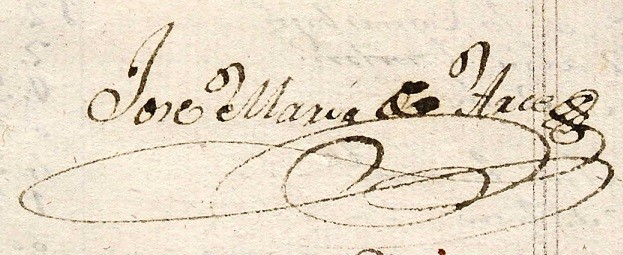 Jose Maria de Arce